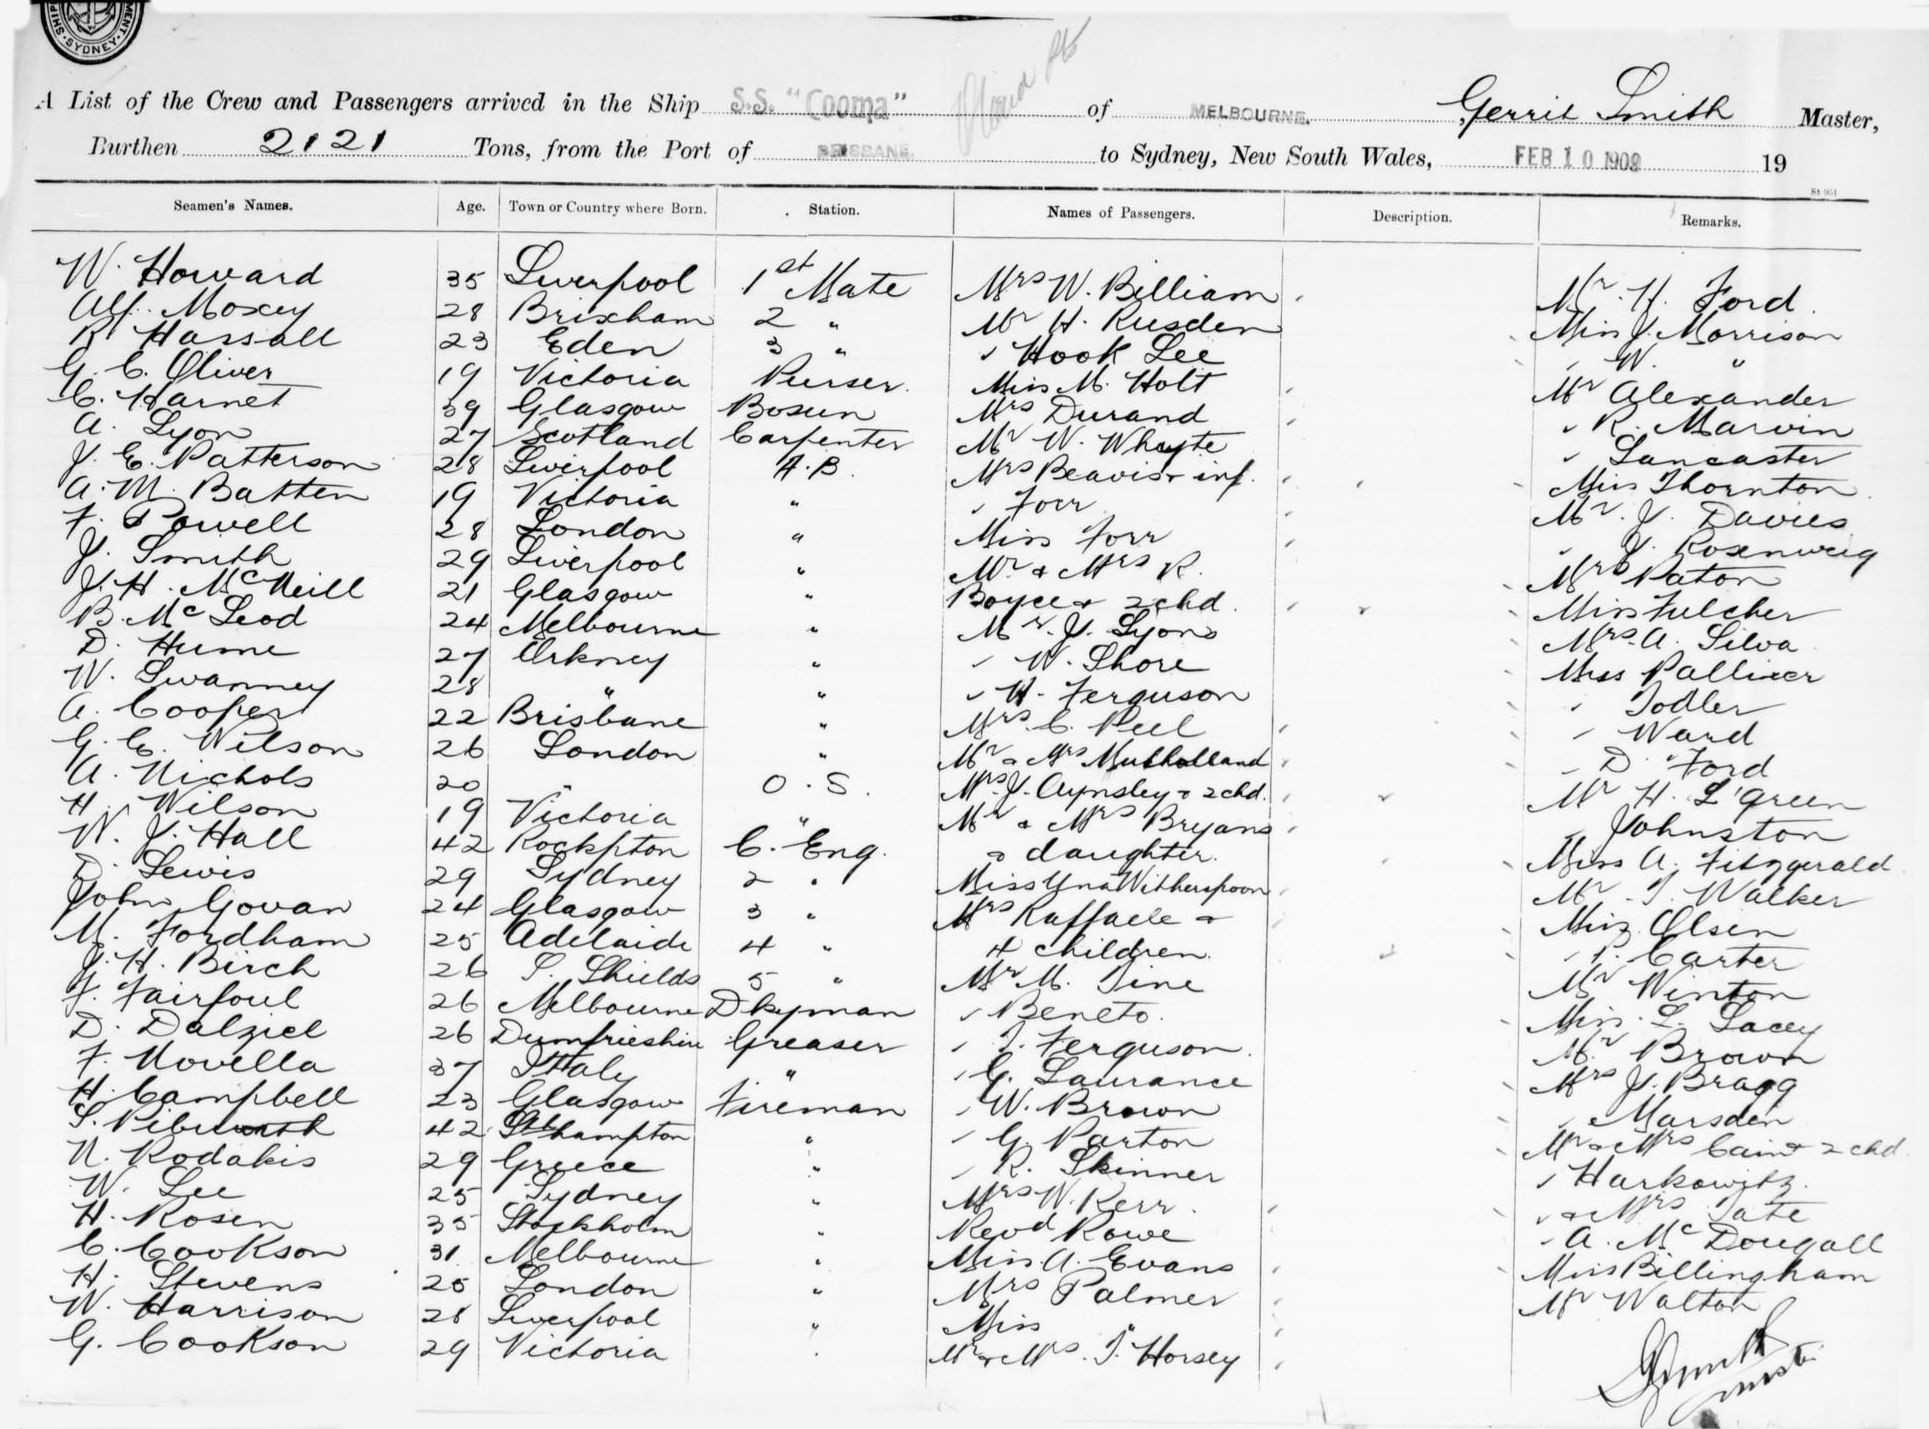 MENT. SHIP
SYDNEY
A List of the Crew and Passengers arrived in the Ship S.S. "Cooma" of MELBOURNE. Gerrit Smith Master,
Burthen 2121 Tons, from the Port of BRISBANE. to Sydney, New South Wales, FEB 10 1909 19
St 951
Seamen's Names. Age. Town or Country where Born. Station. Names of Passengers. Description. Remarks.
W. Howard 35 Liverpool 1st Mate Mrs W. Billiam Mr. H. Ford
Alf. Moxey 28 Brixham 2 " Mr H. Rusden Miss J. Morrison
R Hassall 23 Eden 3 " " Hook Lee " W. "
G. C. Oliver 19 Victoria Purser. Miss M. Holt Mr Alexander
C. Harnet 39 Glasgow Bosun Mrs Durand " R. Marvin
A. Lyon 27 Scotland Carpenter Mr W. Whyte " Lancaster
J. E. Patterson 28 Liverpool A.B. Mrs Beavis + inf. Miss Thornton
A. M. Batten 19 Victoria " " Forr Mr. J. Davies
F. Powell 28 London " Miss Forr " J. Rosenweig
J. Smith 29 Liverpool " Mr & Mrs R. Mrs Paton
J. H. McNeill 21 Glasgow " Boyce + 2 chd. Miss Fulcher
B. McLeod 24 Melbourne " Mr. J. Lyons Mrs A. Silva
D. Hume 27 Orkney " " W. Shore Miss Palliser
W. Swanney 28 " " " H. Ferguson " Todler
A. Cooper 22 Brisbane " Mrs C. Peel " Ward
G. E. Wilson 26 London " Mr & Mrs Mulholland " D. Ford
A. Nichols 20 " O.S. Mrs J. Aynsley + 2 chd. Mr H. L'Green
H. Wilson 19 Victoria " Mr & Mrs Bryans " Johnston
W. J. Hall 42 Rockpton C. Eng. & daughter. Miss A. Fitzgerald
D. Lewis 29 Sydney 2 " Miss Una Witherspoon Mr. T. Walker
John Govan 24 Glasgow 3 " Mrs Raffaele + Miss Olsen
M. Fordham 25 Adelaide 4 " 4 children. " Carter
J. H. Birch 26 S. Shields 5 " Mr M. Tine Mr Winton
F. Fairfoul 26 Melbourne Dkyman " Beneto. Miss L. Lacey
D. Dalziel 26 Dumfrieshire Greaser " T. Ferguson. Mr Brown
F. Novella 37 Italy " " G. Laurance Mrs J. Bragg
H. Campbell 23 Glasgow Fireman " W. Brown " Marsden
S. 42 Sthampton " " G. Parton Mr & Mrs Cain + 2 chd.
N. Rodakis 29 Greece " " R. Skinner " Harkowitz.
W. Lee 25 Sydney " Mrs W. Kerr. " & Mrs Tate
H. Rosen 35 Stockholm " Revd Rowe " A. McDougall
C. Cookson 31 Melbourne " Miss A. Evans Miss Billingham
H. Stevens 25 London " Mrs Palmer Mr Walton
W. Harrison 28 Liverpool " Miss "
G. Cookson 29 Victoria " Mr & Mrs. T. Horsey